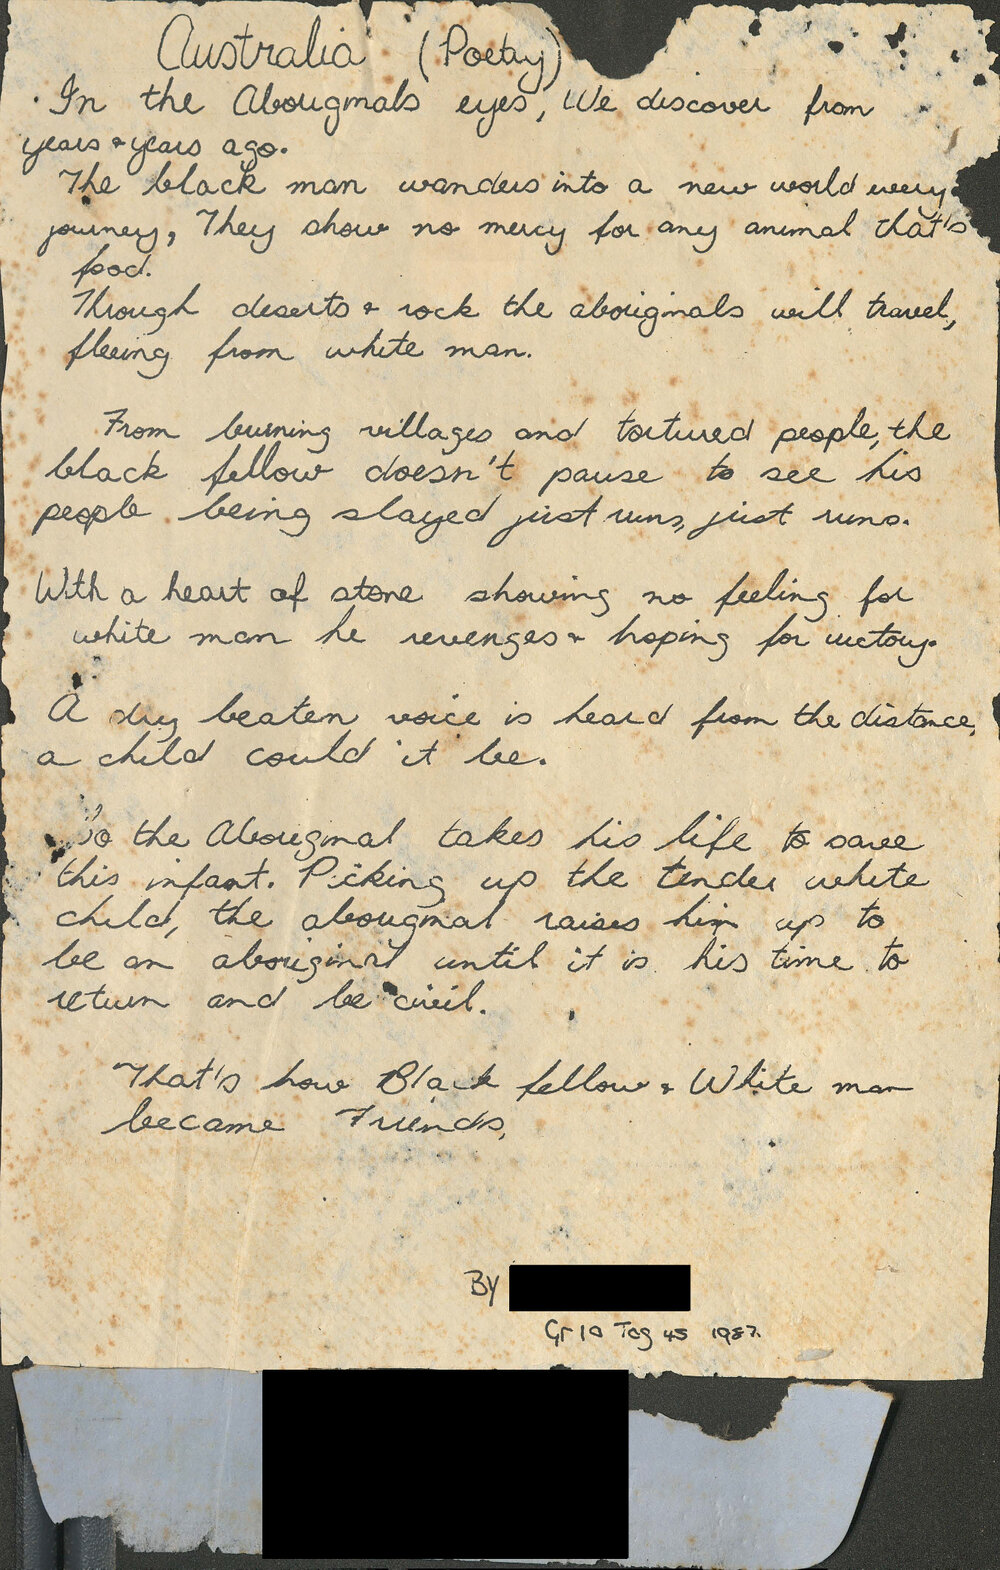 Australia (Poetry)
In the Aboriginals eyes, We discover from
years & years ago.
The black man wanders into a new world every
journey, They show no mercy for any animal that's
food.
Through deserts & rock the aboriginals will travel,
fleeing from white man.
From burning villages and tortured people, the
black fellow doesn't pause to see his
people being slayed just runs, just runs.
With a heart of stone showing no feeling for
white man he revenges & hoping for victory.
A dry beaten voice is heard from the distance,
a child could it be.
So the Aboriginal takes his life to save
this infant. Picking up the tender white
child, the aboriginal raises him up to
be an aboriginal until it is his time to
return and be civil.
That's how Black fellow & White man
became Friends.
By
Gr 10 Tag 45 1987.